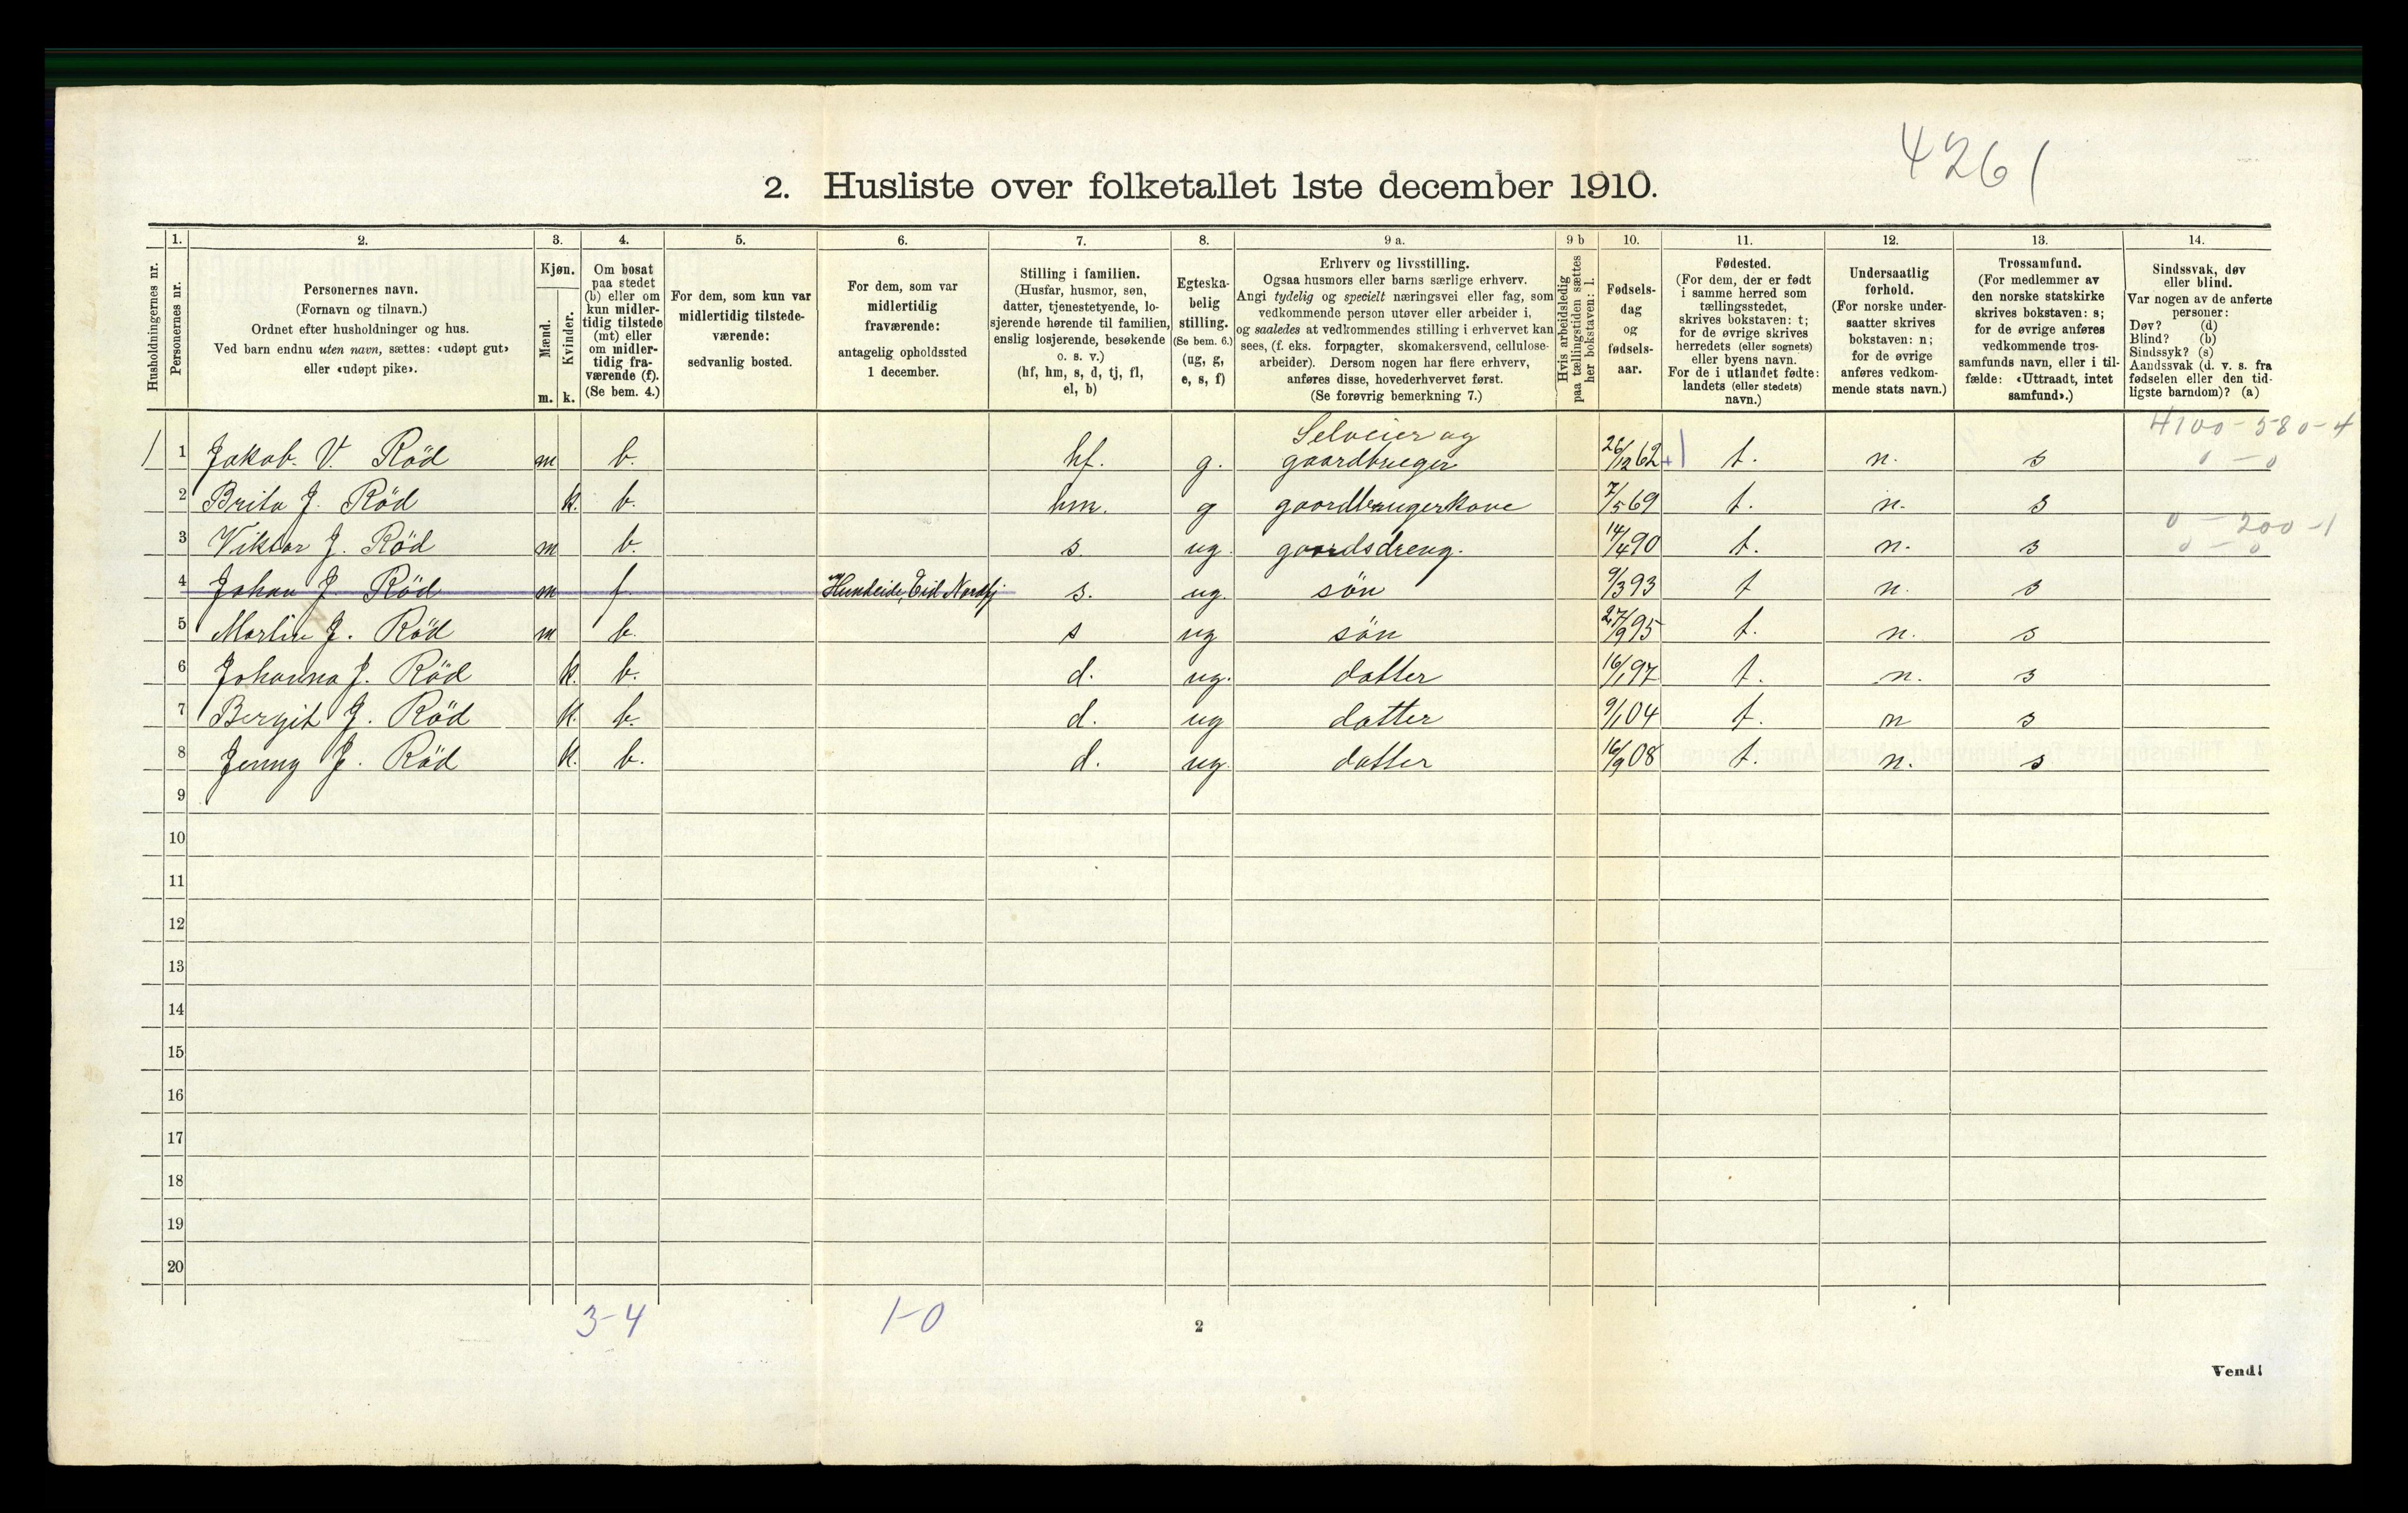 4261
2. Husliste over folketallet 1ste december 1910.
Husholdningernes nr.
1.
Personernes nr.
2.
Personernes navn.
(Fornavn og tilnavn.)
Ordnet efter husholdninger og hus.
Ved barn endnu uten navn, sættes: «udøpt gut»
eller «udøpt pike».
3.
Kjøn.
Mænd.
m.
Kvinder.
k.
4.
Om bosat
paa stedet
(b) eller om
kun midler-
tidig tilstede
(mt) eller
om midler-
tidig fra-
værende (f).
(Se bem. 4.)
5.
For dem, som kun var
midlertidig tilstede-
værende:
sedvanlig bosted.
6.
For dem, som var
midlertidig
fraværende:
antagelig opholdssted
1 december.
7.
Stilling i familien.
(Husfar, husmor, søn,
datter, tjenestetyende, lo-
sjerende hørende til familien,
enslig losjerende, besøkende
o. s. v.)
(hf, hm, s, d, tj, fl,
el, b)
8.
Egteska-
belig
stilling.
(Se bem. 6.)
(ug, g,
e, s, f)
9 a.
Erhverv og livsstilling.
Ogsaa husmors eller barns særlige erhverv.
Angi tydelig og specielt næringsvei eller fag, som
vedkommende person utøver eller arbeider i,
og saaledes at vedkommendes stilling i erhvervet kan
sees, (f. eks. forpagter, skomakersvend, cellulose-
arbeider). Dersom nogen har flere erhverv,
anføres disse, hovederhvervet først.
(Se forøvrig bemerkning 7.)
9 b
Hvis arbeidsledig
paa tællingstiden sættes
her bokstaven: l.
10.
Fødsels-
dag
og
fødsels-
aar.
11.
Fødested.
(For dem, der er født
i samme herred som
tællingsstedet,
skrives bokstaven: t;
for de øvrige skrives
herredets (eller sognets)
eller byens navn.
For de i utlandet fødte:
landets (eller stedets)
navn.)
12.
Undersaatlig
forhold.
(For norske under-
saatter skrives
bokstaven: n;
for de øvrige
anføres vedkom-
mende stats navn.)
13.
Trossamfund.
(For medlemmer av
den norske statskirke
skrives bokstaven: s;
for de øvrige anføres
vedkommende tros-
samfunds navn, eller i til-
fælde: «Uttraadt, intet
samfund».)
14.
Sindssvak, døv
eller blind.
Var nogen av de anførte
personer:
Døv? (d)
Blind? (b)
Sindssyk? (s)
Aandssvak (d. v. s. fra
fødselen eller den tid-
ligste barndom)? (a)
4100-580-4
Selveier og
1 1 Jakob V. Röd m b. hf. g. gaardbruger 26/12 62 +1 t. n. s 0 - 0
2 Brita J. Röd k. b. hm. g gaardbrugerkone 7/5 69 t. n. s
0 - 200 -1
3 Viktor J. Röd m b. s. ug. gaardsdreng. 14/4 90 t. n. s 0 - 0
4 Johan J. Röd m f. Eid Nordfj s. ug. sön 9/3 93 t n. s
5 Martin J. Röd m b. s ug sön 27/9 95 t. n. s
6 Johanna J. Röd k. b. d. ug. datter 16/1 97 t. n. s
7 Bergit J. Röd k. b. d. ug datter 9/1 04 t. n s
8 Jenny J. Röd k. b. d. ug. datter 16/9 08 t. n. s
9
10
11
12
13
14
15
16
17
18
19
20
3-4 1-0
2
Vend!